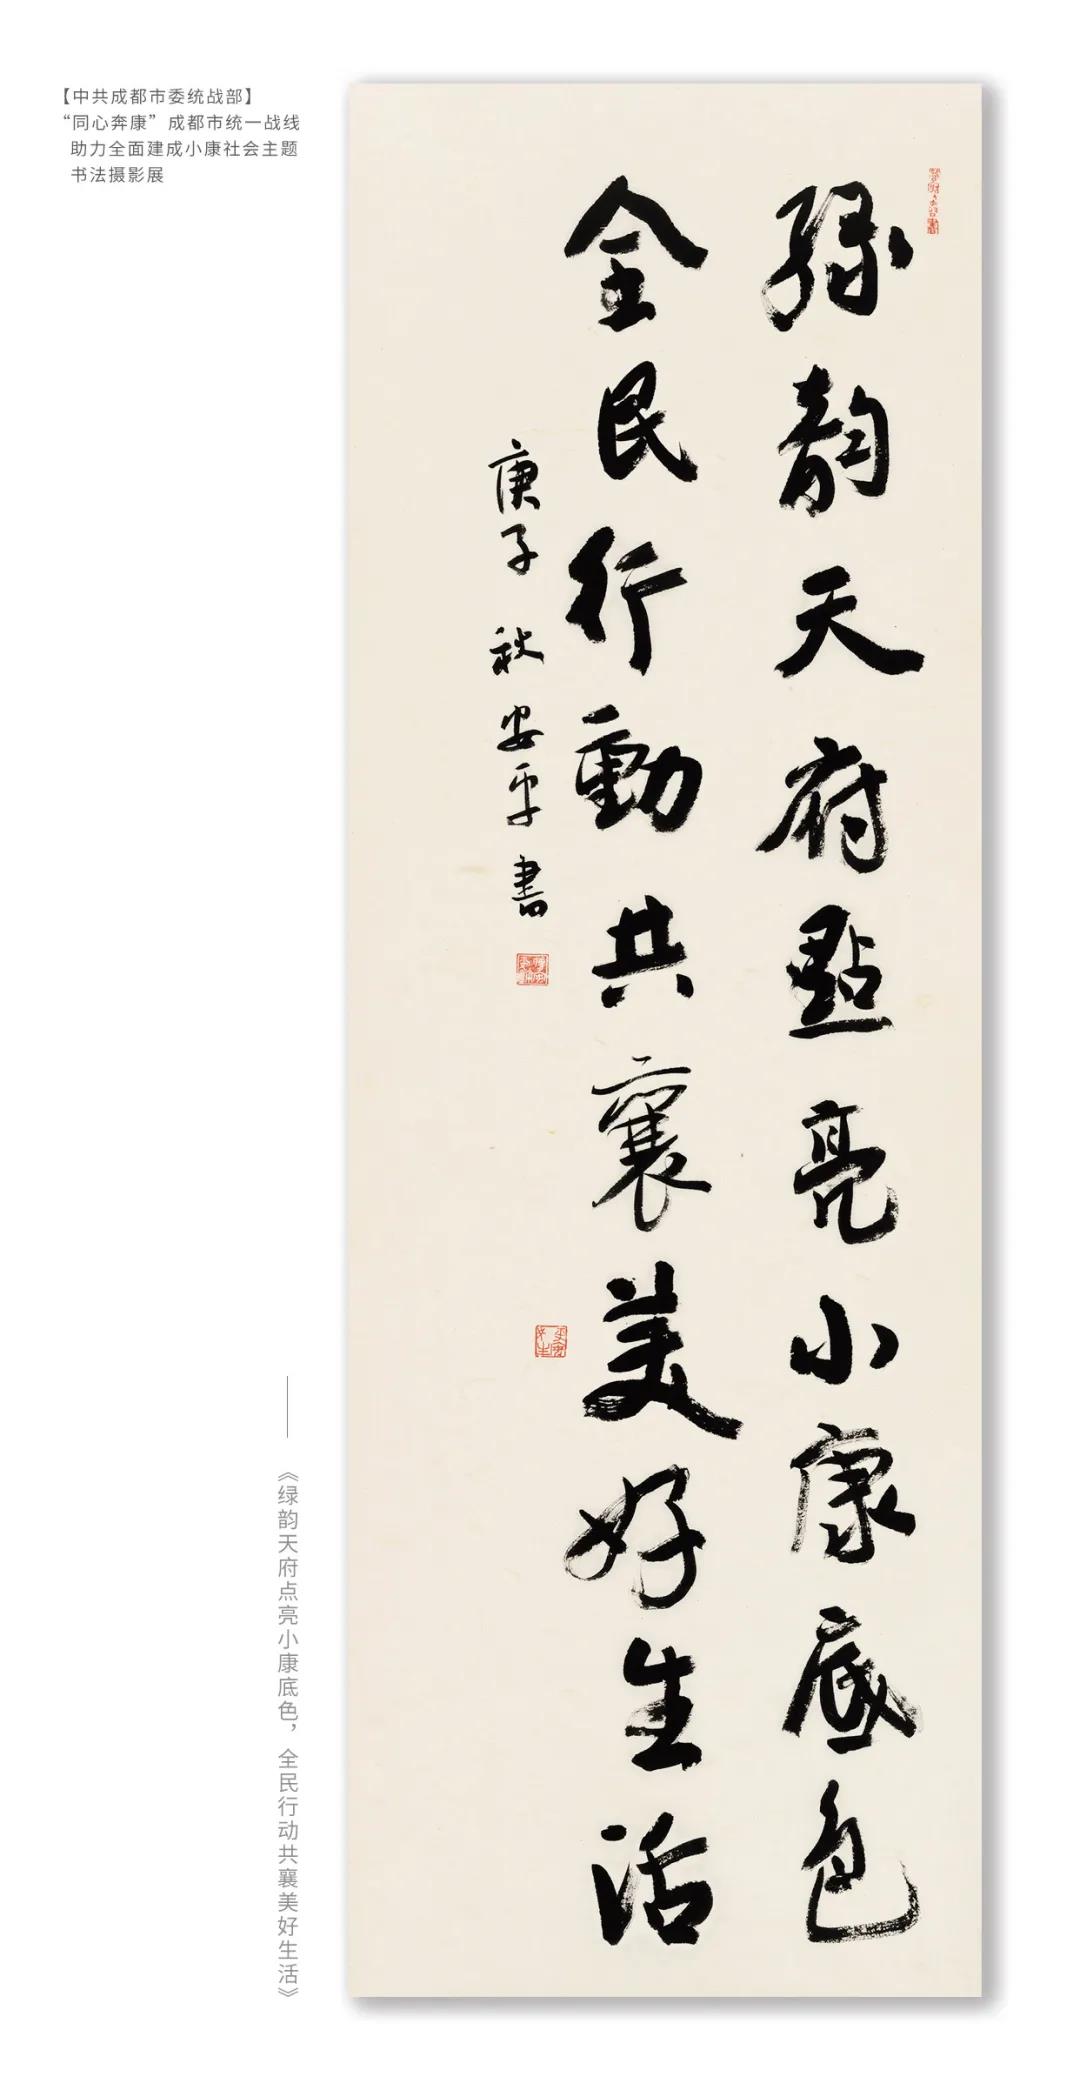 【中共成都市委统战部】
“同心奔康”成都市统一战线
助力全面建成小康社会主题
书法摄影展
綠韵天府點亮小康底色
全民行動共襄美好生活
庚子 秋 安平書
《绿韵天府点亮小康底色，全民行动共襄美好生活》